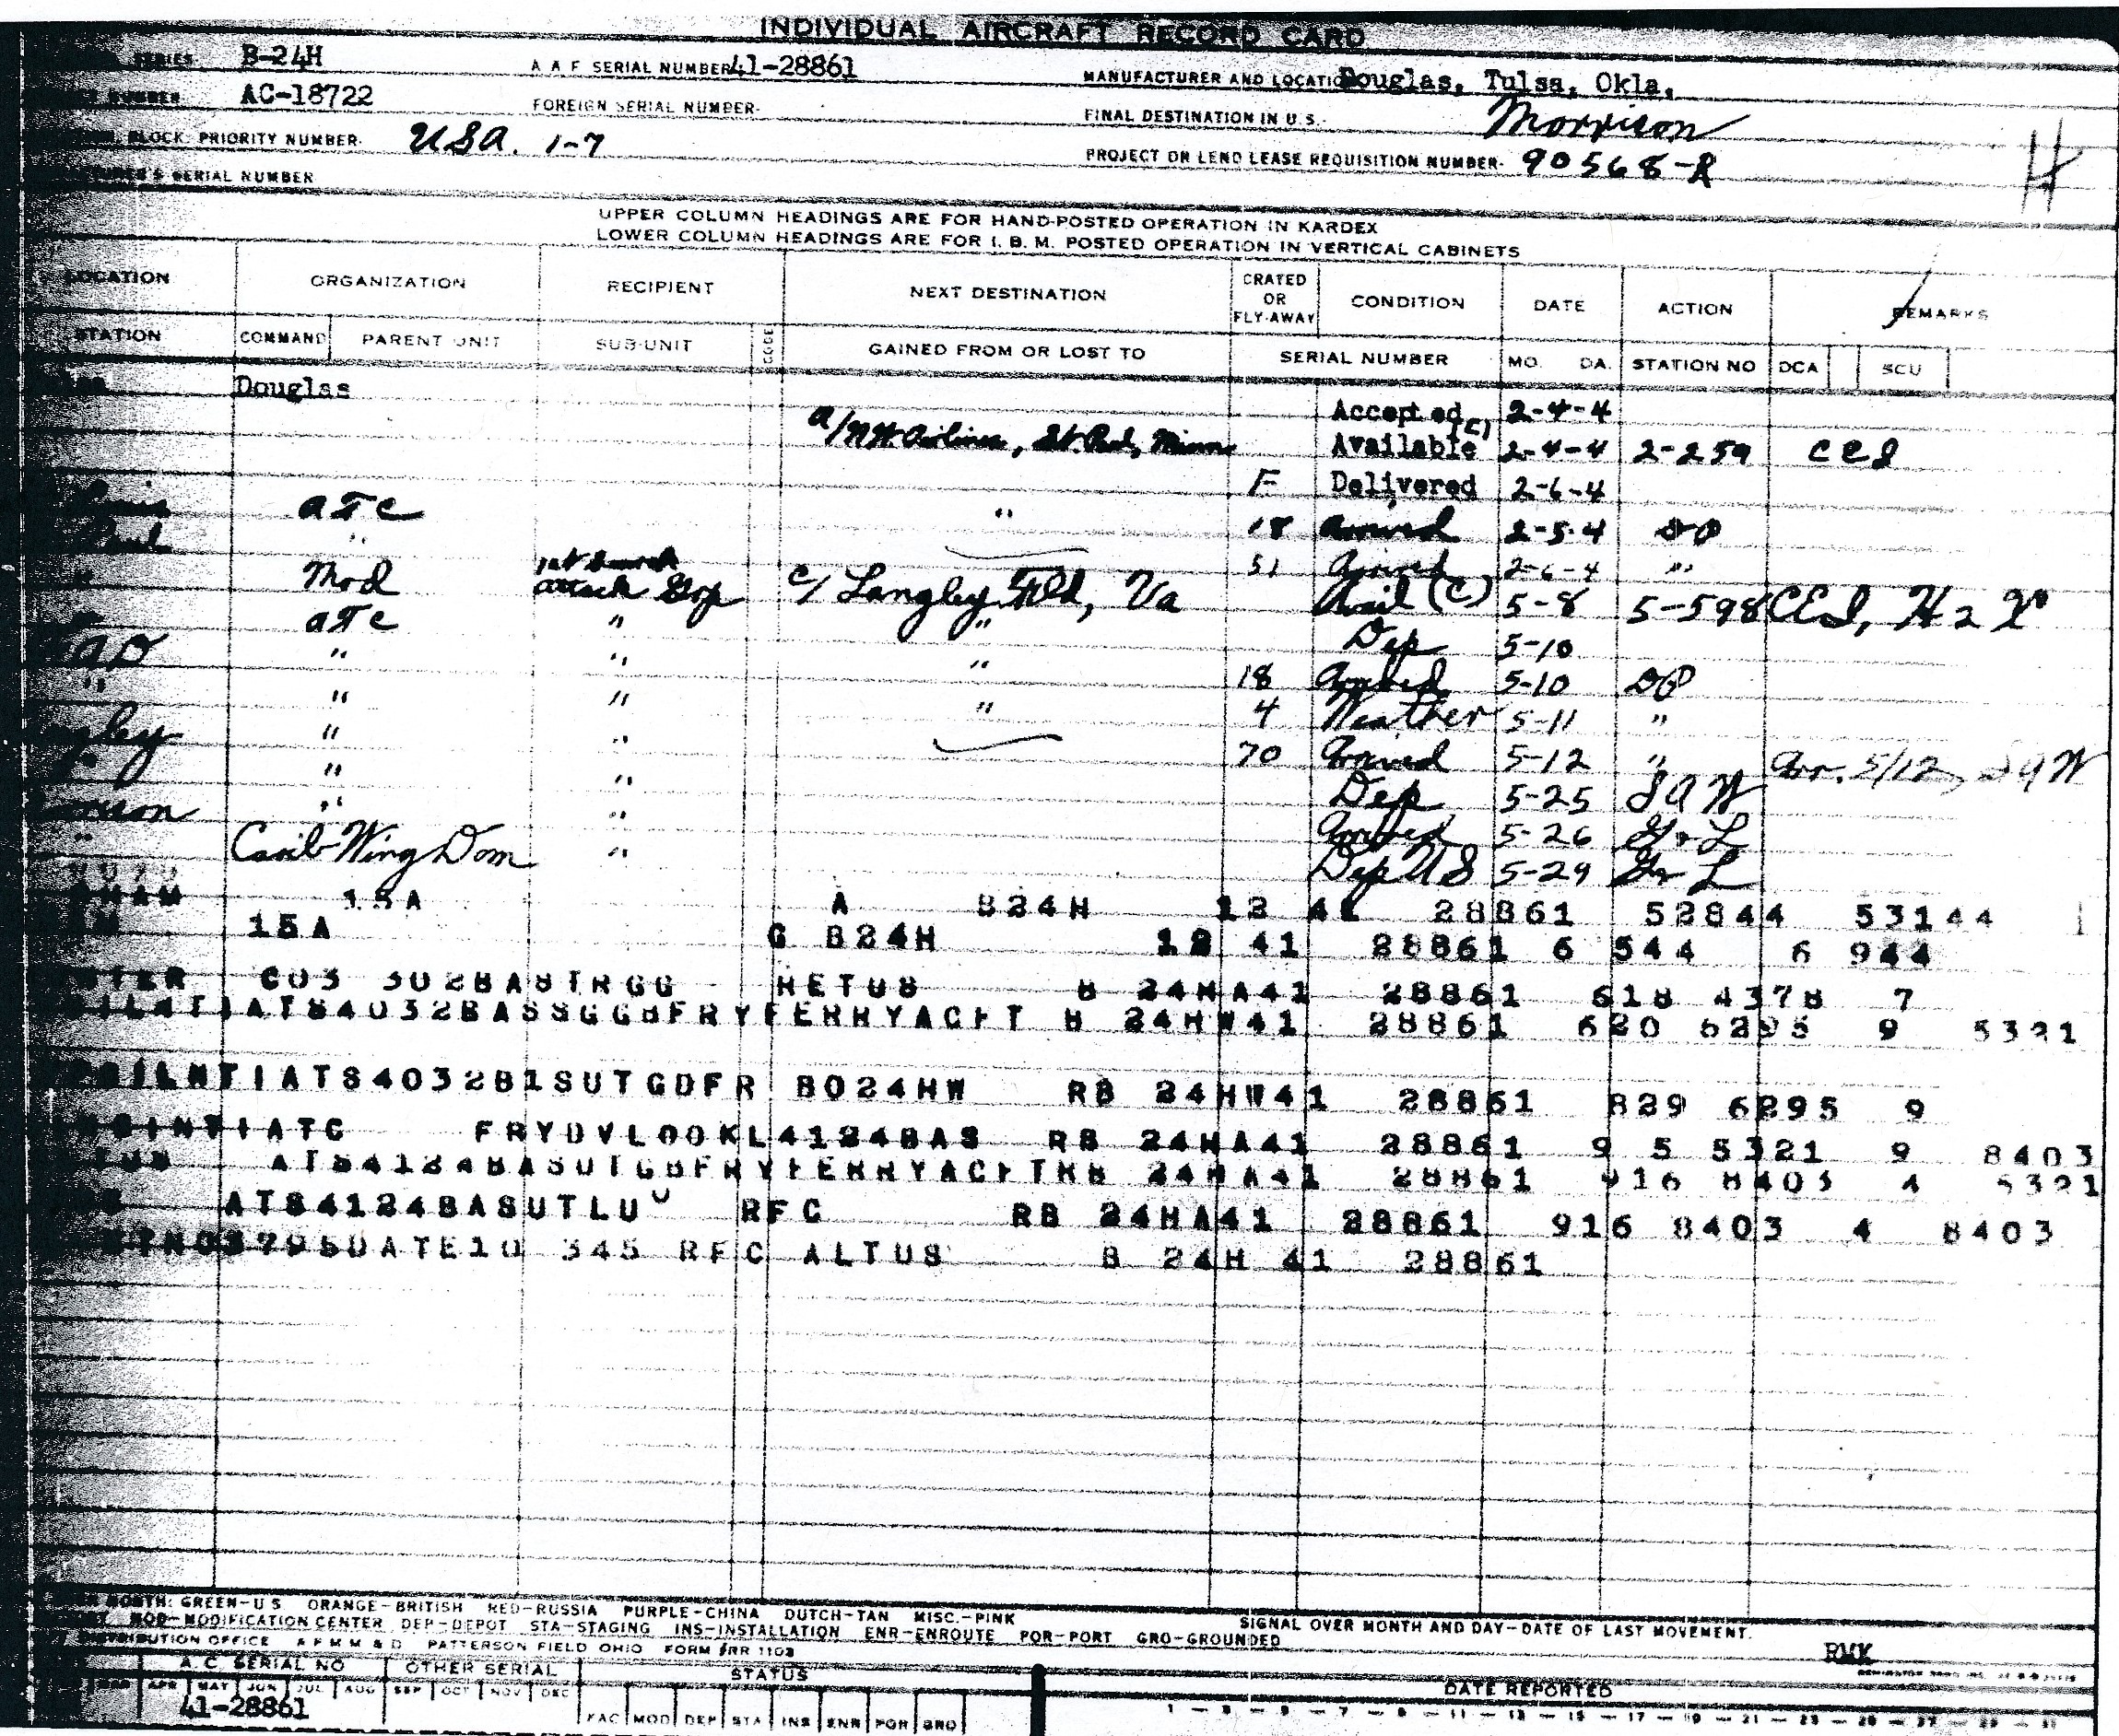 INDIVIDUAL AIRCRAFT RECORD CARD
SERIES B-24H A A F SERIAL NUMBER 41-28861 MANUFACTURER AND LOCATION Douglas, Tulsa, Okla,
NUMBER AC-18722 FOREIGN SERIAL NUMBER- FINAL DESTINATION IN U.S.- Morrison
BLOCK. PRIORITY NUMBER- USA. 1-7 PROJECT OR LEND LEASE REQUISITION NUMBER- 90568-R
SERIAL NUMBER
H
UPPER COLUMN HEADINGS ARE FOR HAND-POSTED OPERATION IN KARDEX
LOWER COLUMN HEADINGS ARE FOR I. B. M. POSTED OPERATION IN VERTICAL CABINETS
LOCATION ORGANIZATION RECIPIENT NEXT DESTINATION CRATED OR FLY-AWAY CONDITION DATE ACTION REMARKS
STATION COMMAND PARENT UNIT SUB-UNIT CODE GAINED FROM OR LOST TO SERIAL NUMBER MO. DA. STATION NO DCA SCU
Douglas
Accepted 2-4-4
a/NW Airlines, St. Paul, Minn Available (C) 2-4-4 2-259 CCS
F Delivered 2-6-4
ATC " 18 Arrived 2-5-4 DP
Paul " 51 Arrived 2-6-4 "
" Mod Attack Grp c/ Langley Fld, Va Avail (C) 5-8 5-598 CES, H2X
ATC " " Dep 5-10
" " " 18 Arrived 5-10 DP
" " " " 4 Weather 5-11 "
" " 70 Arrived 5-12 " Arr. 5/12, SAW
" " " Dep 5-25 SAW
" " Arrived 5-26 Gr L
" Carib Wing Dom " Dep US 5-29 Gr L
15A A B24H 12 41 28861 52844 53144
15A G B24H 12 41 28861 6 544 6 944
C03 302BASTRGG RETUS B 24HA41 28861 618 4378 7
IATS4032BASSGGBFRYFERRYACFT B 24HW41 28861 620 6295 9 5321
IATS403281SUTGDFR BO24HW RB 24HW41 28861 829 6295 9
IATC FRYDVLOOKL4124BAS RB 24HA41 28861 9 5 5321 9 8403
ATS4124BASUTGBFRYFERRYACFTRB 24HA41 28861 916 8403 4 5321
ATS4124BASUTLU RFC RB 24HA41 28861 916 8403 4 8403
DATE10 345 RFC ALTUS B 24H 41 28861
MONTH: GREEN-US ORANGE-BRITISH RED-RUSSIA PURPLE-CHINA DUTCH-TAN MISC.-PINK
MOD-MODIFICATION CENTER DEP-DEPOT STA-STAGING INS-INSTALLATION ENR-ENROUTE POR-PORT GRO-GROUNDED SIGNAL OVER MONTH AND DAY-DATE OF LAST MOVEMENT.
DISTRIBUTION OFFICE A F M M & D PATTERSON FIELD OHIO FORM 1102 RMK
A. C. SERIAL NO OTHER SERIAL STATUS DATE REPORTED
APR MAY JUN JUL AUG SEP OCT NOV DEC
41-28861 FAC MOD DEP STA INS ENR POR GRO 1 - 3 - 5 - 7 - 9 - 11 - 13 - 15 - 17 - 19 - 21 - 23 - 25 - 27 - 29 - 31